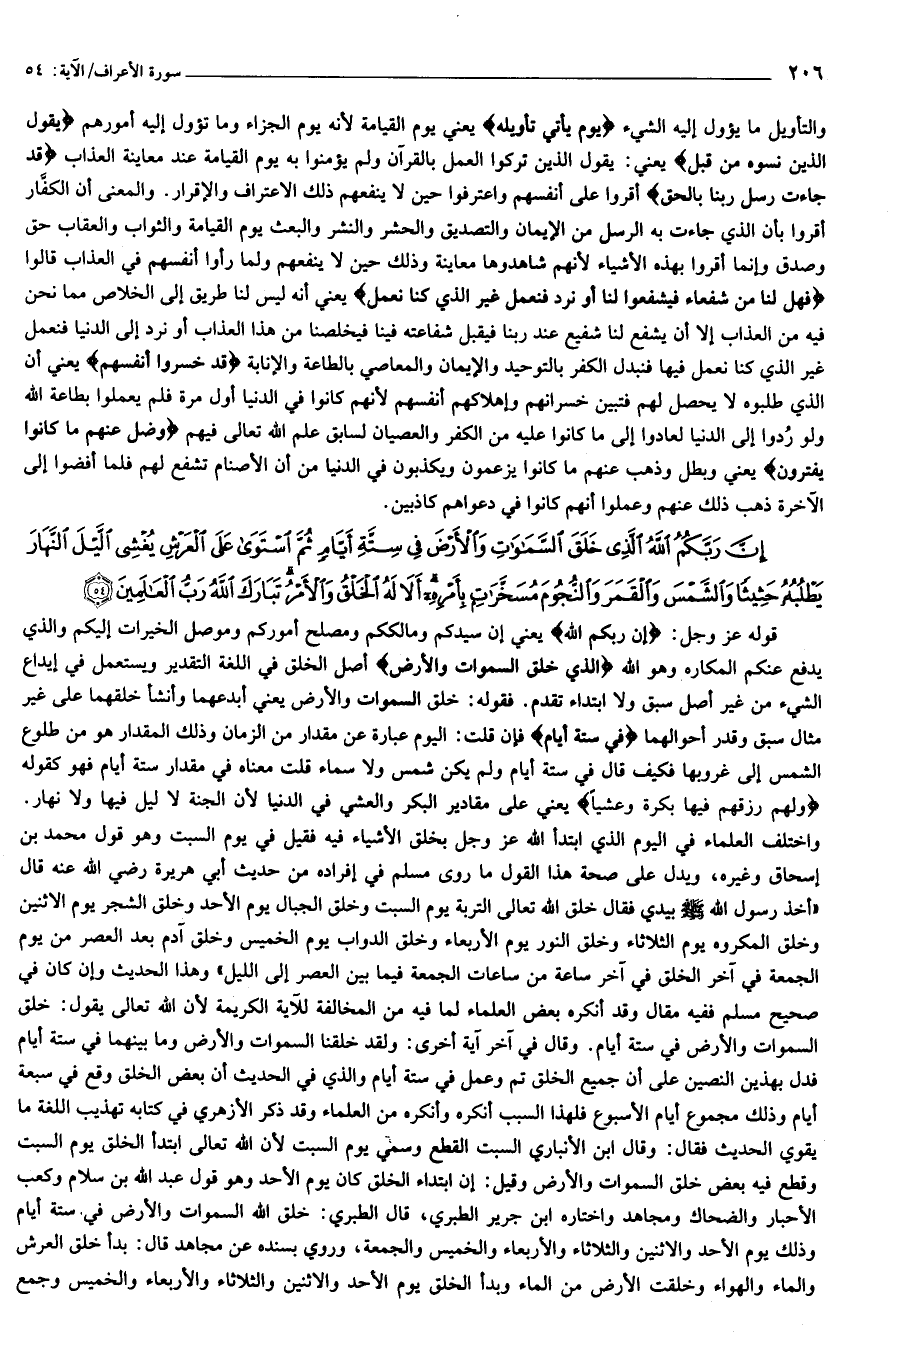 ٢٠٦ ـــــــ سورة الأعراف/ الآية: ٥٤
والتأويل ما يؤول إليه الشيء ﴿يوم يأتي تأويله﴾ يعني يوم القيامة لأنه يوم الجزاء وما تؤول إليه أمورهم ﴿يقول
الذين نسوه من قبل﴾ يعني: يقول الذين تركوا العمل بالقرآن ولم يؤمنوا به يوم القيامة عند معاينة العذاب ﴿قد
جاءت رسل ربنا بالحق﴾ أقروا على أنفسهم واعترفوا حين لا ينفعهم ذلك الاعتراف والإقرار. والمعنى أن الكفَّار
أقروا بأن الذي جاءت به الرسل من الإيمان والتصديق والحشر والنشر والبعث يوم القيامة والثواب والعقاب حق
وصدق وإنما أقروا بهذه الأشياء لأنهم شاهدوها معاينة وذلك حين لا ينفعهم ولما رأوا أنفسهم في العذاب قالوا
﴿فهل لنا من شفعاء فيشفعوا لنا أو نرد فنعمل غير الذي كنا نعمل﴾ يعني أنه ليس لنا طريق إلى الخلاص مما نحن
فيه من العذاب إلا أن يشفع لنا شفيع عند ربنا فيقبل شفاعته فينا فيخلصنا من هذا العذاب أو نرد إلى الدنيا فنعمل
غير الذي كنا نعمل فيها فنبدل الكفر بالتوحيد والإيمان والمعاصي بالطاعة والإنابة ﴿قد خسروا أنفسهم﴾ يعني أن
الذي طلبوه لا يحصل لهم فتبين خسرانهم وإهلاكهم أنفسهم لأنهم كانوا في الدنيا أول مرة فلم يعملوا بطاعة الله
ولو رُدوا إلى الدنيا لعادوا إلى ما كانوا عليه من الكفر والعصيان لسابق علم الله تعالى فيهم ﴿وضل عنهم ما كانوا
يفترون﴾ يعني وبطل وذهب عنهم ما كانوا يزعمون ويكذبون في الدنيا من أن الأصنام تشفع لهم فلما أفضوا إلى
الآخرة ذهب ذلك عنهم وعملوا أنهم كانوا في دعواهم كاذبين.
إِنَّ رَبَّكُمُ ٱللَّهُ ٱلَّذِى خَلَقَ ٱلسَّمَـٰوَٰتِ وَٱلْأَرْضَ فِى سِتَّةِ أَيَّامٍ ثُمَّ ٱسْتَوَىٰ عَلَى ٱلْعَرْشِ يُغْشِى ٱلَّيْلَ ٱلنَّهَارَ
يَطْلُبُهُۥ حَثِيثًا وَٱلشَّمْسَ وَٱلْقَمَرَ وَٱلنُّجُومَ مُسَخَّرَٰتٍۭ بِأَمْرِهِۦٓ ۗ أَلَا لَهُ ٱلْخَلْقُ وَٱلْأَمْرُ ۗ تَبَارَكَ ٱللَّهُ رَبُّ ٱلْعَـٰلَمِينَ ﴿٥٤﴾
قوله عز وجل: ﴿إن ربكم الله﴾ يعني إن سيدكم ومالككم ومصلح أموركم وموصل الخيرات إليكم والذي
يدفع عنكم المكاره وهو الله ﴿الذي خلق السموات والأرض﴾ أصل الخلق في اللغة التقدير ويستعمل في إيداع
الشيء من غير أصل سبق ولا ابتداء تقدم. فقوله: خلق السموات والأرض يعني أبدعهما وأنشأ خلقهما على غير
مثال سبق وقدر أحوالهما ﴿في ستة أيام﴾ فإن قلت: اليوم عبارة عن مقدار من الزمان وذلك المقدار هو من طلوع
الشمس إلى غروبها فكيف قال في ستة أيام ولم يكن شمس ولا سماء قلت معناه في مقدار ستة أيام فهو كقوله
﴿ولهم رزقهم فيها بكرة وعشياً﴾ يعني على مقادير البكر والعشي في الدنيا لأن الجنة لا ليل فيها ولا نهار.
واختلف العلماء في اليوم الذي ابتدأ الله عز وجل بخلق الأشياء فيه فقيل في يوم السبت وهو قول محمد بن
إسحاق وغيره، ويدل على صحة هذا القول ما روى مسلم في إفراده من حديث أبي هريرة رضي الله عنه قال
«أخذ رسول الله ﷺ بيدي فقال خلق الله تعالى التربة يوم السبت وخلق الجبال يوم الأحد وخلق الشجر يوم الاثنين
وخلق المكروه يوم الثلاثاء وخلق النور يوم الأربعاء وخلق الدواب يوم الخميس وخلق آدم بعد العصر من يوم
الجمعة في آخر الخلق في آخر ساعة من ساعات الجمعة فيما بين العصر إلى الليل» وهذا الحديث وإن كان في
صحيح مسلم ففيه مقال وقد أنكره بعض العلماء لما فيه من المخالفة للآية الكريمة لأن الله تعالى يقول: خلق
السموات والأرض في ستة أيام. وقال في آخر آية أخرى: ولقد خلقنا السموات والأرض وما بينهما في ستة أيام
فدل بهذين النصين على أن جميع الخلق تم وعمل في ستة أيام والذي في الحديث أن بعض الخلق وقع في سبعة
أيام وذلك مجموع أيام الأسبوع فلهذا السبب أنكره وأنكره من العلماء وقد ذكر الأزهري في كتابه تهذيب اللغة ما
يقوي الحديث فقال: وقال ابن الأنباري السبت القطع وسمي يوم السبت لأن الله تعالى ابتدأ الخلق يوم السبت
وقطع فيه بعض خلق السموات والأرض وقيل: إن ابتداء الخلق كان يوم الأحد وهو قول عبد الله بن سلام وكعب
الأحبار والضحاك ومجاهد واختاره ابن جرير الطبري، قال الطبري: خلق الله السموات والأرض في ستة أيام
وذلك يوم الأحد والاثنين والثلاثاء والأربعاء والخميس والجمعة، وروي بسنده عن مجاهد قال: بدأ خلق العرش
والماء والهواء وخلقت الأرض من الماء وبدأ الخلق يوم الأحد والاثنين والثلاثاء والأربعاء والخميس وجمع